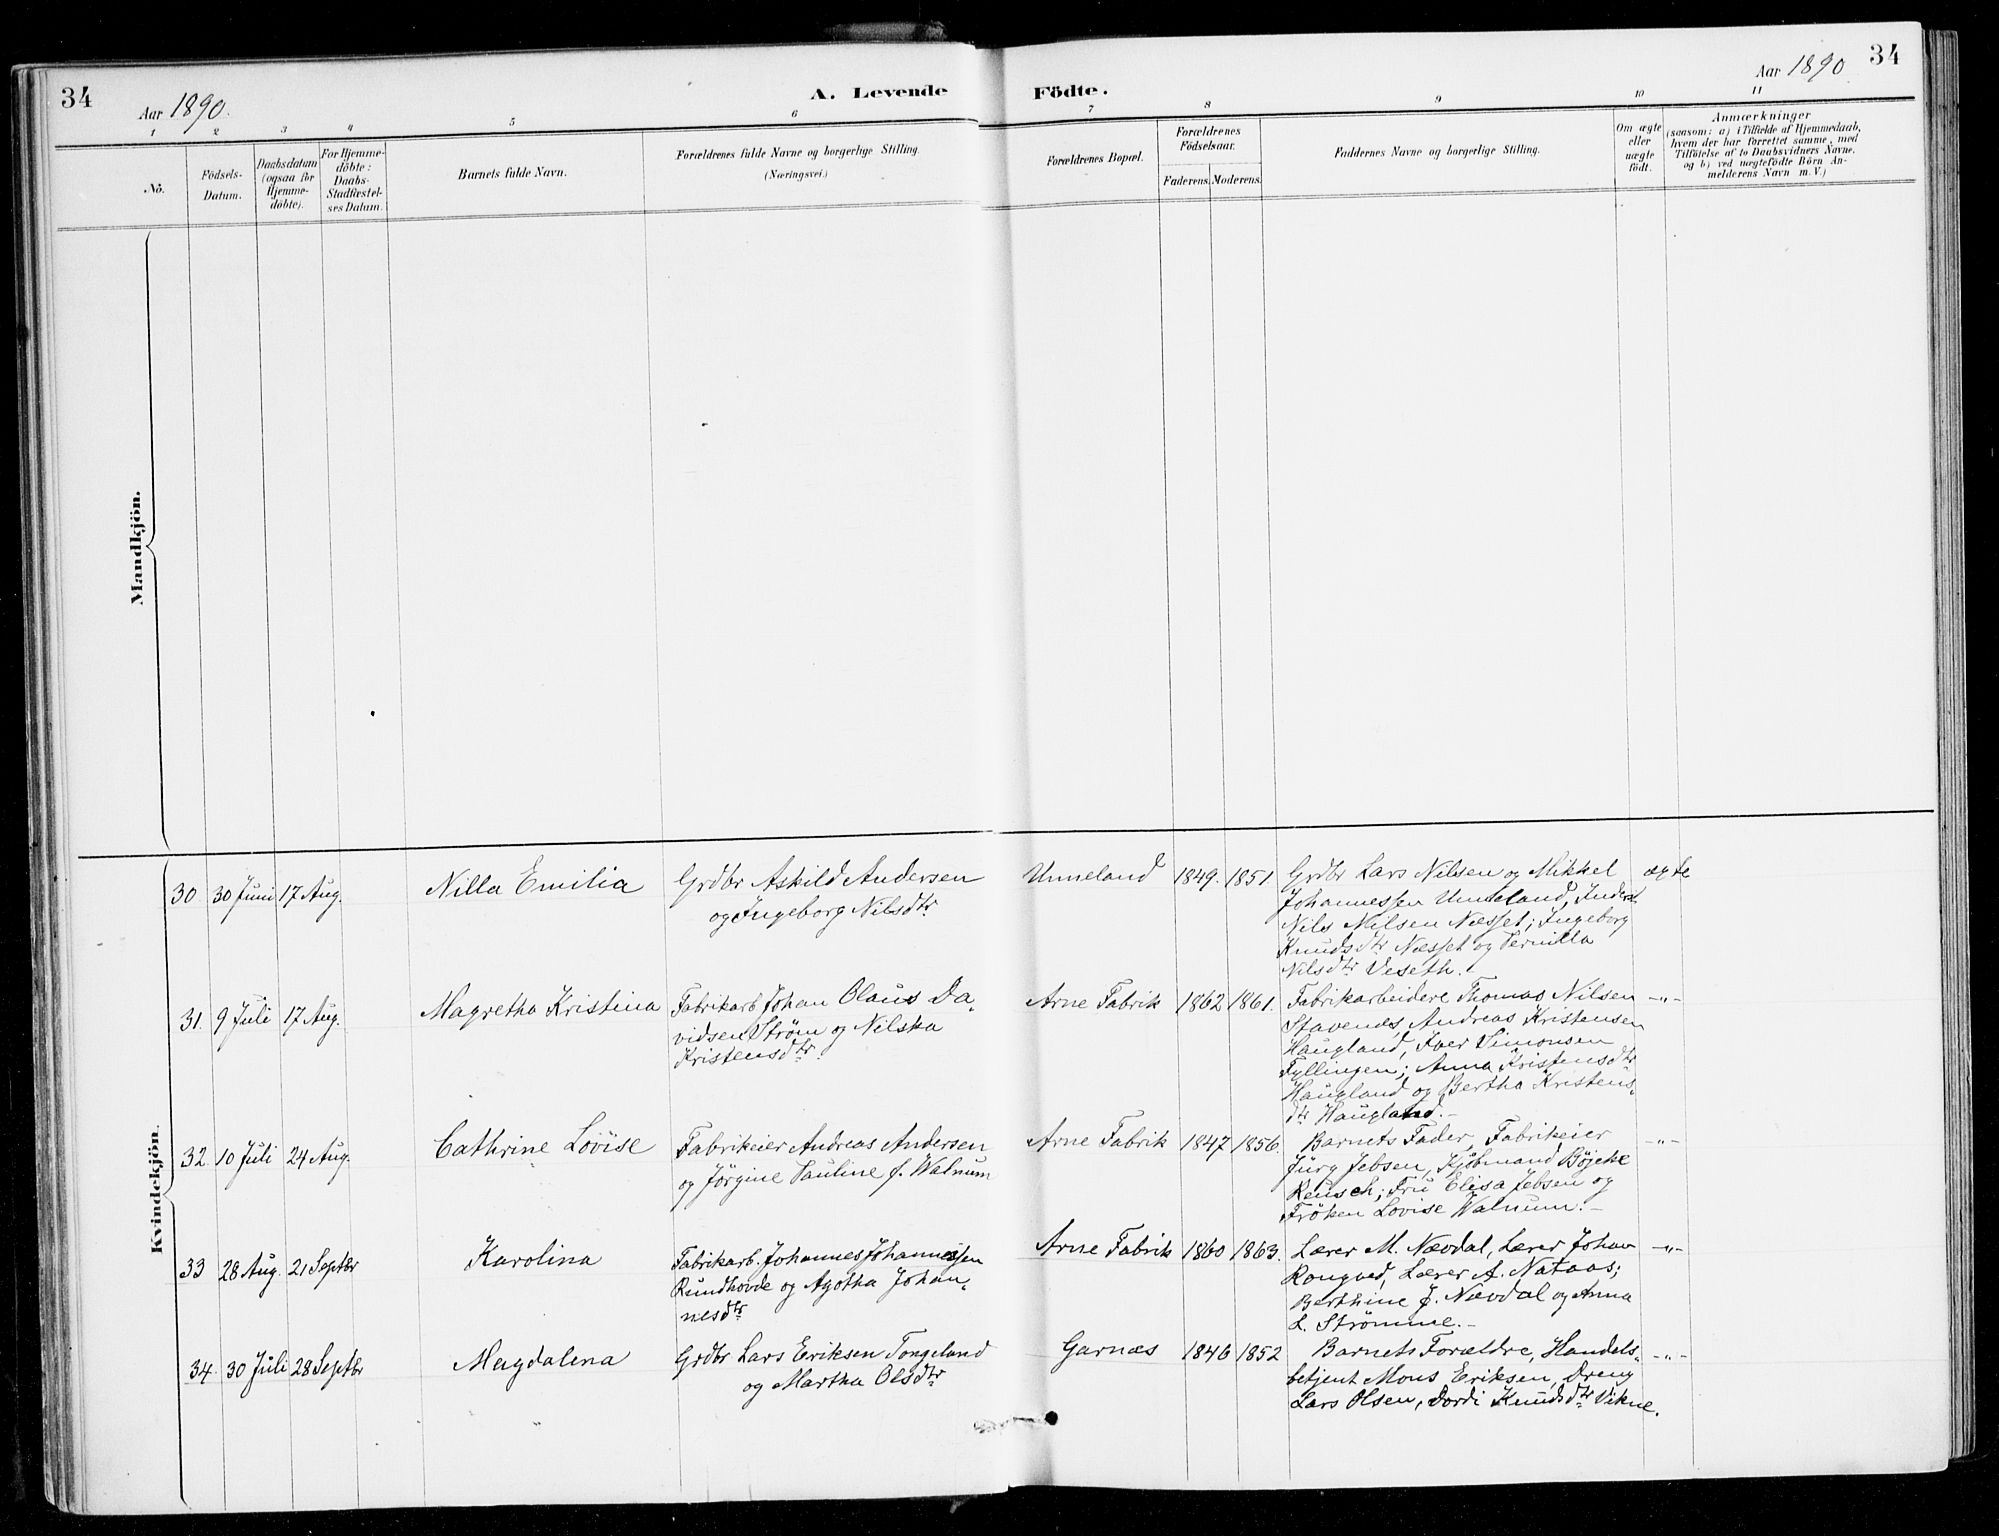 34
Aar 1890.
A. Levende
Födte.
Aar 1890.
34
1 2 3 4 5 6 7 8 9 10 11
Nô.
Födsels-
Datum.
Daabsdatum
(ogsaa för
Hjemme-
döbte).
For Hjemme-
döbte:
Daabs-
Stadfæstel-
ses Datum.
Barnets fulde Navn.
Forældrenes fulde Navne og borgerlige Stilling.
(Næringsvei.)
Forældrenes Bopæl.
Forældrenes
Födselsaar.
Faderens. Moderens.
Faddernes Navne og borgerlige Stilling.
Om ægte
eller
uægte
födt.
Anmærkninger
(saasom: a) i Tilfælde af Hjemmedaab,
hvem der har forrettet samme, med
Tilföielse af to Daabsvidners Navne.
og b) ved uægtefödte Börn An-
melderens Navn m. V.)
Mandkjön.
Kvindekjön.
30 30 Juni 17 Aug. Nilla Emilia
Grdbr Askild Andersen
og Ingeborg Nilsdtr
Unneland 1849. 1851.
Grdbr Lars Nilsen og Mikkel
Johannessen Unneland,
Nils Nilsen Næsset; Ingeborg
Knudsdtr Næsset og Pernilla
Nilsdtr Veseth.
ægte
31. 9 Juli 17 Aug. Magretha Kristina
Fabrikarb. Johan Olaus Da-
vidsen Strøm og Nilska
Kristensdtr
Arne Fabrik 1862 1861.
Fabrikarbeidere Thomas Nilsen
Stavenes, Andreas Kristensen
Haugland, Iver Simonsen
Fyllingen; Anna Kristensdtr
Haugland og Bertha Kristens-
dtr Haugland.-
-"-
32. 10 Juli 24 Aug. Cathrine Lovise
Fabrikeier Andreas Andersen
og Jörgine Pauline f. Walnum
Arne Fabrik 1847 1856.
Barnets Fader, Fabrikeier
Jürg Jebsen, Kjöbmand Böjcke
Reusch; Fru Elisa Jebsen og
Fröken Lovise Walnum.-
-"-
33 28 Aug. 21 Septbr Karolina
Fabrikarb. Johannes Johannessen
Rundhovde og Agotha Johan-
nesdtr
Arne Fabrik 1860 1863.
Lærer M. Nævdal, Lærer Johan
Rongved, Lærer A. Nataas;
Berthine J. Nævdal og Anna
L. Strømme.-
-"-
34. 30 Juli 28 Septbr Magdalena
Grdbr Lars Eriksen Tongeland
og Martha Olsdtr
Garnæs 1846 1852
Barnets Forældre, Handels-
betjent Mons Eriksen, Dreng
Lars Olsen, Dordi Knudsdtr Vikne.
-"-